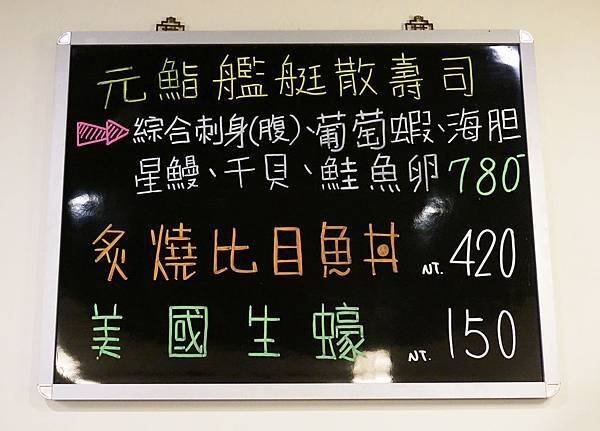 元鮨艦艇散壽司
綜合刺身(腹)、葡萄蝦、海胆
星鰻、干貝、鮭魚卵780
炙燒比目魚丼 NT. 420
美國生蠔 NT. 150